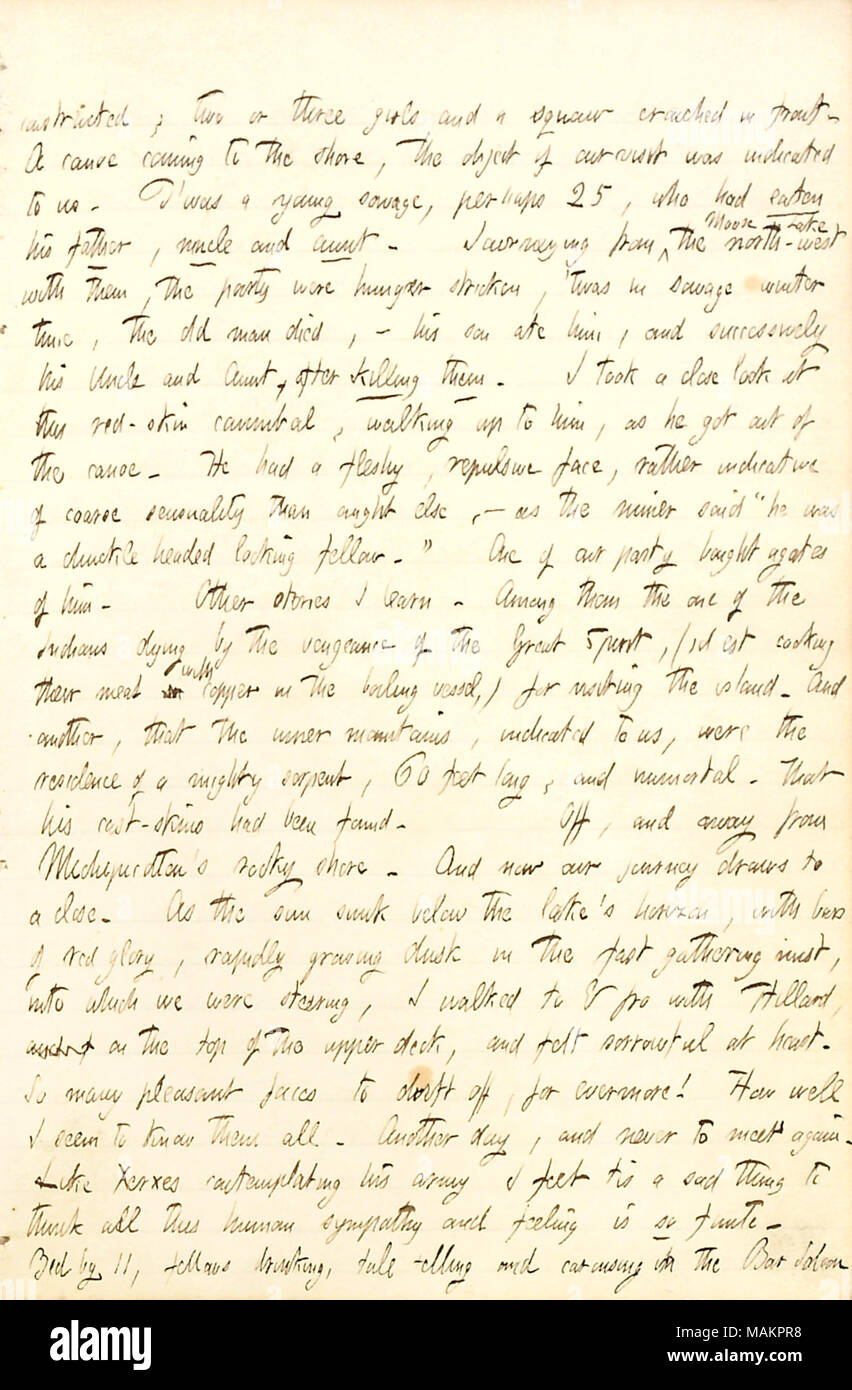 constructed; two or three girls and a squaw crouched in front.
A canoe coming to the shore, the object of our visit was indicated
to us. T'was a young savage, perhaps 25, who had eaten
his father, uncle and aunt. Journeying from Moose Lake, the north-west
with them, the party were hunger stricken, 'twas in savage winter
time, the old man died, - his son ate him, and successively
his Uncle and Aunt, after killing them. I took a close look at
this red-skin cannibal, walking up to him, as he got out of
the canoe. He had a fleshy, repulsive face, rather indicative
of coarse sensuality than aught else, - as the miner said "he was
a chuckle headed looking fellow." One of our party bought agates
of him. Other stories I learn. Among them the one of the
Indians dying by the vengeance of the Great Spirit, (id est cooking
their meat with copper in the boiling vessel,) for visiting the island. And
another, that the inner mountains, indicated to us, were the
residence of a mighty serpent, 60 feet long, and immortal. That
his cast-skins had been found. Off, and away from
Michipicoten's rocky shore. And now our journey draws to
a close. As the sun sunk below the lake's horizon, with bars
of red glory, rapidly growing dusk in the fast gathering mist,
into which we were steering, I walked to & fro with Hillard,
on the top of the upper deck, and felt sorrowful at heart.
So many pleasant faces to drift off, for evermore! How well
I seem to know them all. Another day, and never to meet again.
Like Xerxes contemplating his army I feel tis a sad thing to
think all this human sympathy and feeling is so finite.
Bed by 11, fellows drinking, tale telling and carousing in the Bar Saloon
alamy
Image ID: MAKPR8
www.alamy.com